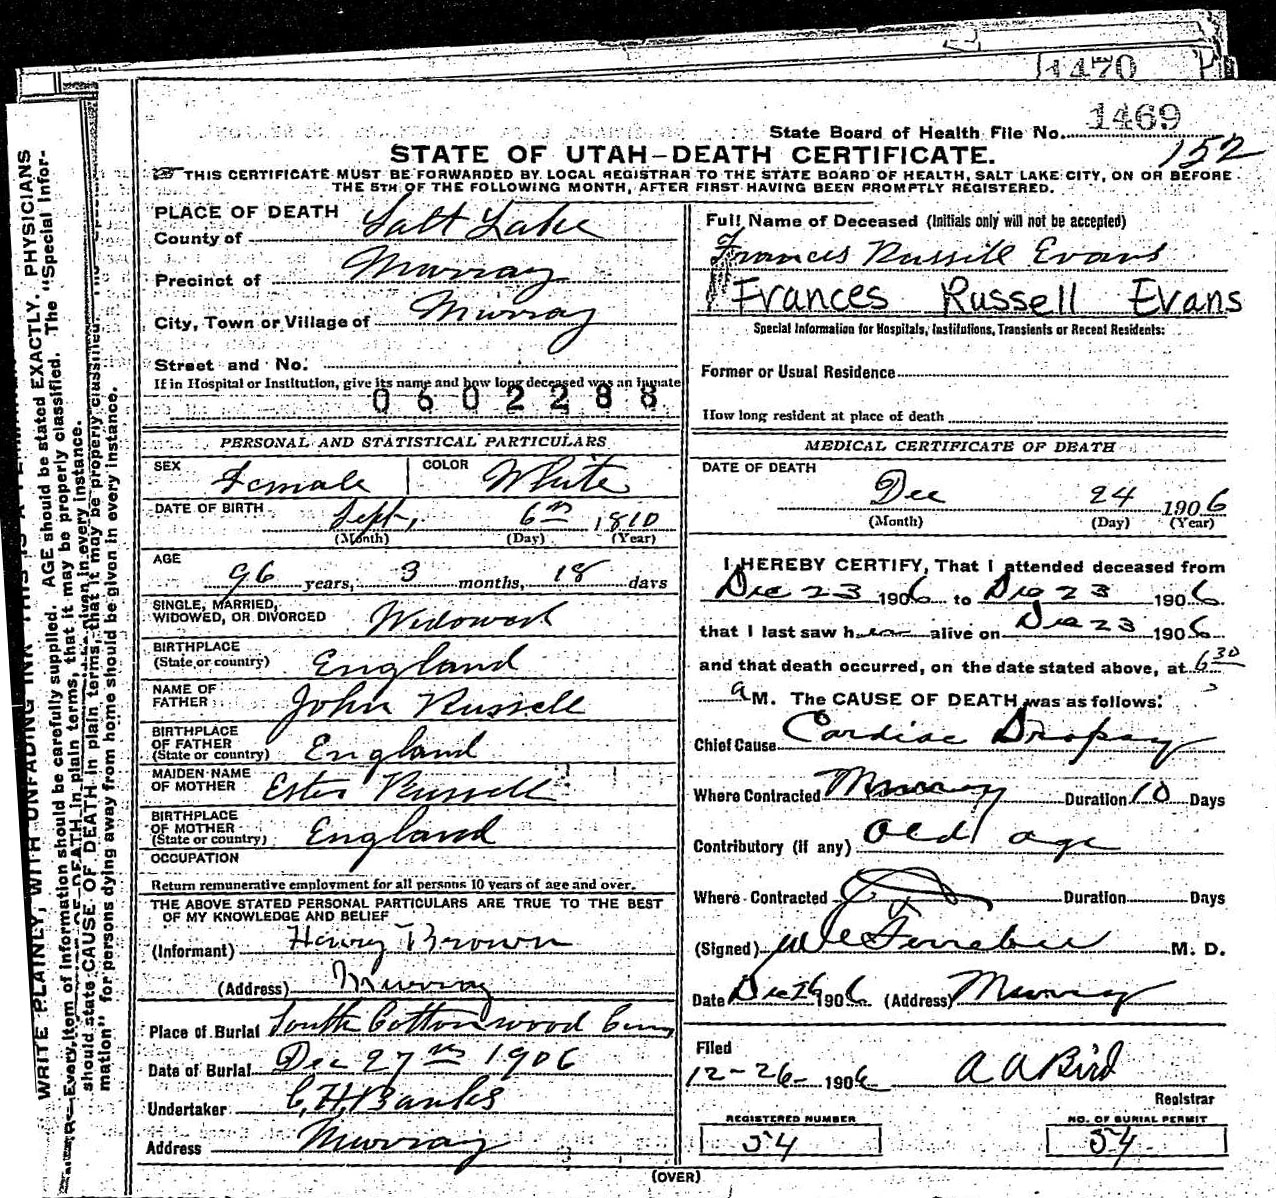 1470
State Board of Health File No. 1469
152
STATE OF UTAH—DEATH CERTIFICATE.
THIS CERTIFICATE MUST BE FORWARDED BY LOCAL REGISTRAR TO THE STATE BOARD OF HEALTH, SALT LAKE CITY, ON OR BEFORE
THE 5TH OF THE FOLLOWING MONTH, AFTER FIRST HAVING BEEN PROMPTLY REGISTERED.
PLACE OF DEATH
County of Salt Lake
Precinct of Murray
City, Town or Village of Murray
Street and No.
If in Hospital or Institution, give its name and how long deceased was an inmate
0602288
PERSONAL AND STATISTICAL PARTICULARS
SEX Female COLOR White
DATE OF BIRTH Sept, 6th 1810
(Month) (Day) (Year)
AGE 96 years, 3 months, 18 days
SINGLE, MARRIED,
WIDOWED, OR DIVORCED Widowed
BIRTHPLACE
(State or country) England
NAME OF
FATHER John Russell
BIRTHPLACE
OF FATHER
(State or country) England
MAIDEN NAME
OF MOTHER Ester Russell
BIRTHPLACE
OF MOTHER
(State or country) England
OCCUPATION
Return remunerative employment for all persons 10 years of age and over.
THE ABOVE STATED PERSONAL PARTICULARS ARE TRUE TO THE BEST
OF MY KNOWLEDGE AND BELIEF
(Informant) Henry Brown
(Address) Murray
Place of Burial South Cottonwood Cem
Date of Burial Dec 27th 1906
Undertaker C. H. Banks
Address Murray
Full Name of Deceased (Initials only will not be accepted)
Frances Russill Evans
Frances Russell Evans
Special Information for Hospitals, Institutions, Transients or Recent Residents:
Former or Usual Residence
How long resident at place of death
MEDICAL CERTIFICATE OF DEATH
DATE OF DEATH
Dec 24 1906
(Month) (Day) (Year)
I HEREBY CERTIFY, That I attended deceased from
Dec 23 1906 to Dec 23 1906
that I last saw her alive on Dec 23 1906
and that death occurred, on the date stated above, at 6 30
a M. The CAUSE OF DEATH was as follows:
Chief Cause Cardiac Dropsy
Where Contracted Murray Duration 10 Days
Contributory (if any) Old age
Where Contracted Duration Days
(Signed) M. D.
Date Dec 26 1906 (Address) Murray
Filed
12-26- 1906 A A Bird
Registrar
REGISTERED NUMBER NO. OF BURIAL PERMIT
54 54
(OVER)
WRITE PLAINLY, WITH UNFADING INK
Every item of information should be carefully supplied. AGE should be stated EXACTLY. PHYSICIANS
should state CAUSE OF DEATH in plain terms, that it may be properly classified. The "Special Infor-
mation" for persons dying away from home should be given in every instance.